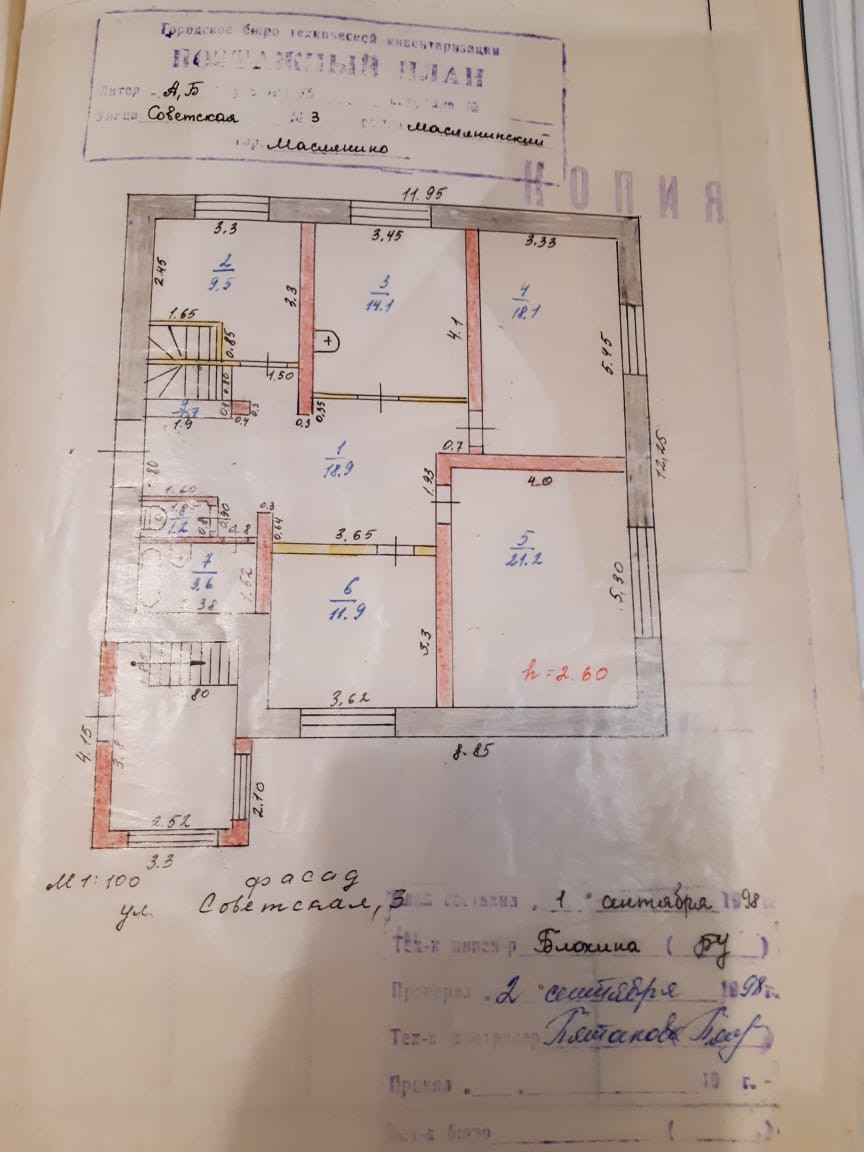 Городское бюро технической инвентаризации
ПОЭТАЖНЫЙ ПЛАН
Литер А,Б
Улица Советская № 3 Маслянинский
гор. Маслянино
КОПИЯ
11.95
3.3
3,45
3.33
2.45
2
9.5
3.3
3
14.1
4.1
4
18.1
5.45
1.65
0.85
1.50
0.80
0.4
0.3
0.35
1.9
1
18.9
0.7
12,25
4.0
1.93
1.60
1.8
1.2
0.90
0.3
0,64
3.65
5
21.2
5,30
7
3.6
1.52
38
6
11.9
3.3
h=2.60
3,62
80
8.85
4.15
3.8
2.10
2.52
3.3
М 1:100 фасад
ул. Советская, 3
План составил „1" сентября 1998
Тех-к инвен-р Блохина (БУ)
Проверил „2" сентября 1998г.
Тех-к контролер Пятакова
Принял „ " 19 г.
Нач-к бюро ( )